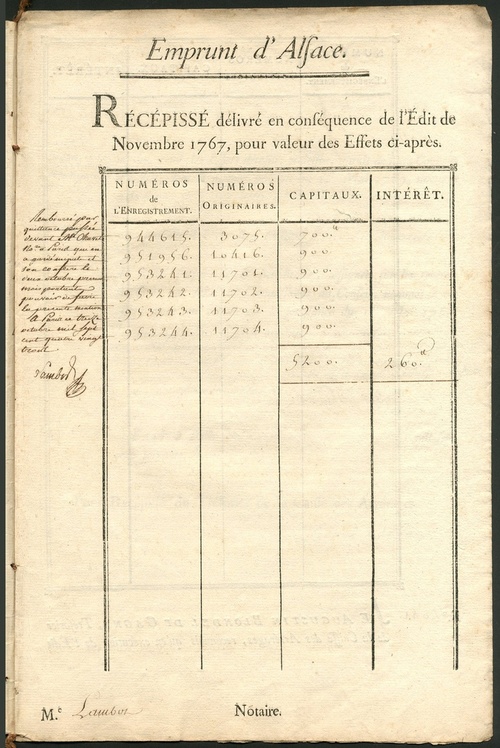 Emprunt d'Alſace.
RÉCÉPISSÉ délivré en conſéquence de l'Édit de
Novembre 1767, pour valeur des Effets ci-après.
NUMÉROS de l'ENREGISTREMENT. NUMÉROS ORIGINAIRES. CAPITAUX. INTÉRÊT.
944615. 3075. 700.tt
951956. 10416. 900.
953241. 11701. 900.
953242. 11702. 900.
953243. 11703. 900.
953244. 11704. 900.
5200. 260.tt
Remboursé par
quittance passée
devant Me
no.re à Paris qui en
a gardé minute et
son confrere le
deux octobre présent
mois portant
pouvoir de faire
la presente mention
A Paris ce treize
octobre mil sept
cent quatre vingt
Lambot
M.e Lambot Notaire.